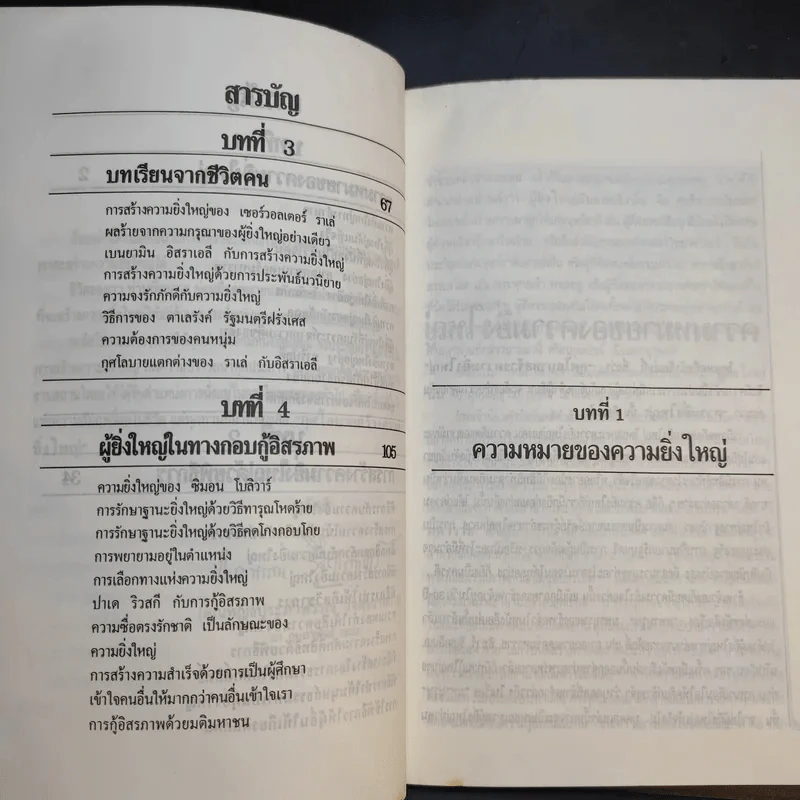 สารบัญ
บทที่ 3
บทเรียนจากชีวิตคน 67
การสร้างความยิ่งใหญ่ของ เซอร์วอลเตอร์ ราเล่
ผลร้ายจากความกรุณาของผู้ยิ่งใหญ่อย่างเดียว
เบนยามิน อิสราเอลี กับการสร้างความยิ่งใหญ่
การสร้างความยิ่งใหญ่ด้วยการประพันธ์นวนิยาย
ความจงรักภักดีกับความยิ่งใหญ่
วิธีการของ ตาเลรังค์ รัฐมนตรีฝรั่งเศส
ความต้องการของคนหนุ่ม
กุศโลบายแตกต่างของ ราเล่ กับอิสราเอลี
บทที่ 4
ผู้ยิ่งใหญ่ในทางกอบกู้อิสรภาพ 105
ความยิ่งใหญ่ของ ซิมอน โบลิวาร์
การรักษาฐานะยิ่งใหญ่ด้วยวิธีทารุณโหดร้าย
การรักษาฐานะยิ่งใหญ่ด้วยวิธีคดโกงกอบโกย
การพยายามอยู่ในตำแหน่ง
การเลือกทางแห่งความยิ่งใหญ่
ปาเด ริวสกี กับการกู้อิสรภาพ
ความซื่อตรงรักชาติ เป็นลักษณะของ
ความยิ่งใหญ่
การสร้างความสำเร็จด้วยการเป็นผู้ศึกษา
เข้าใจคนอื่นให้มากกว่าคนอื่นเข้าใจเรา
การกู้อิสรภาพด้วยมติมหาชน
บทที่ 1
ความหมายของความยิ่งใหญ่